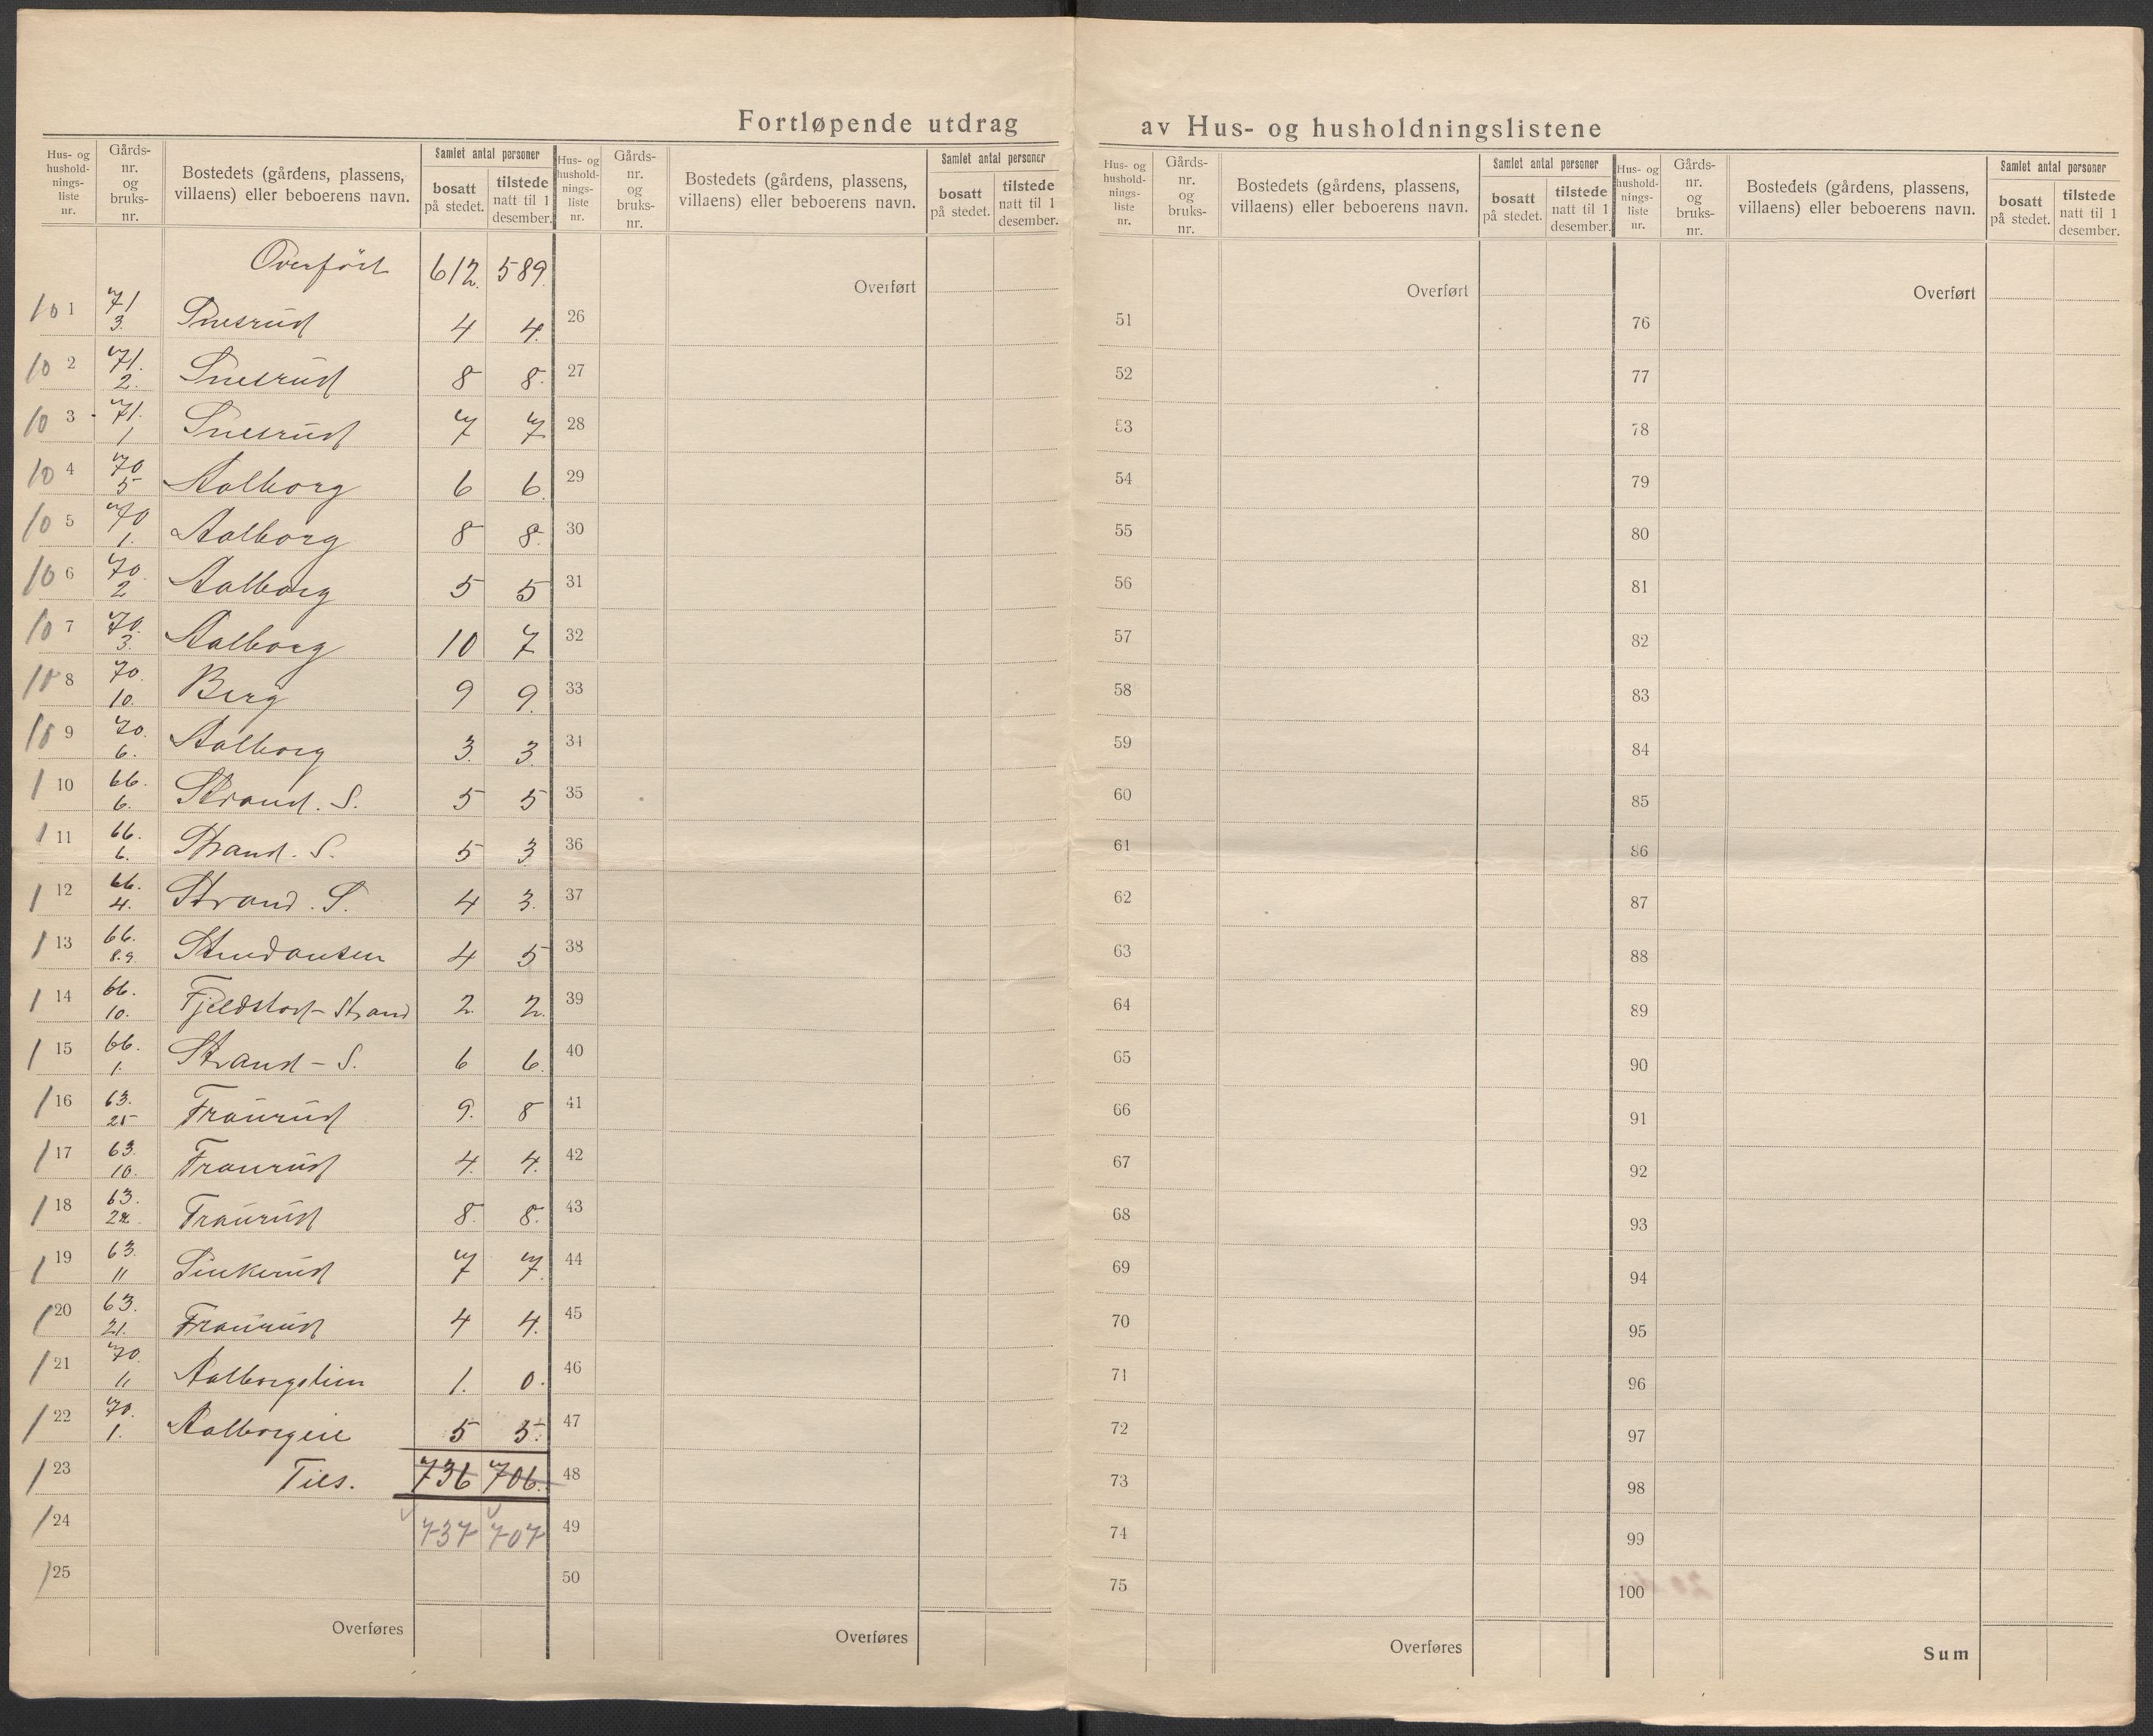 Fortløpende utdrag av Hus- og husholdningslistene
Hus- og hushold-nings-liste nr. Gårds-nr. og bruks-nr. Bostedets (gårdens, plassens, villaens) eller beboerens navn. Samlet antal personer bosatt på stedet. tilstede natt til 1 desember.
Hus- og hushold-nings-liste nr. Gårds-nr. og bruks-nr. Bostedets (gårdens, plassens, villaens) eller beboerens navn. Samlet antal personer bosatt på stedet. tilstede natt til 1 desember.
Hus- og hushold-nings-liste nr. Gårds-nr. og bruks-nr. Bostedets (gårdens, plassens, villaens) eller beboerens navn. Samlet antal personer bosatt på stedet. tilstede natt til 1 desember.
Hus- og hushold-nings-liste nr. Gårds-nr. og bruks-nr. Bostedets (gårdens, plassens, villaens) eller beboerens navn. Samlet antal personer bosatt på stedet. tilstede natt til 1 desember.
Overført 612. 589.
101 71 3. Snesrud 4 4.
102 71. 2. Snesrud 8 8.
103 71. 1 Snesrud 7 7
104 70 5 Aalborg 6 6.
105 70 1. Aalborg 8 8.
106 70. 2 Aalborg 5 5
107 70. 3. Aalborg 10 7
108 70. 10. Berg 9 9.
109 70. 6. Aalborg 3. 3.
110 66. 6. Strand. S. 5 5
111 66. 6. Strand. S. 5 3.
112 66. 4. Strand. S. 4 3.
113 66. 8.9. 4 5
114 66. 10. Strand 2. 2.
115 66. 1. Strand - S. 6 6.
116 63. 25 Fraurud 9. 8
117 63. 10. Fraurud 4. 4.
118 63. 22. Fraurud 8. 8.
119 63. 11 7 7.
120 63. 21. Fraurud 4 4.
121 70. 11 1. 0.
122 70. 1. Aalborgeie 5 5.
123 Tils. 736 706.
124 737 707
125
Overføres
Overført
26
27
28
29
30
31
32
33
34
35
36
37
38
39
40
41
42
43
44
45
46
47
48
49
50
Overføres
Overført
51
52
53
54
55
56
57
58
59
60
61
62
63
64
65
66
67
68
69
70
71
72
73
74
75
Overføres
Overført
76
77
78
79
80
81
82
83
84
85
86
87
88
89
90
91
92
93
94
95
96
97
98
99
100
Sum